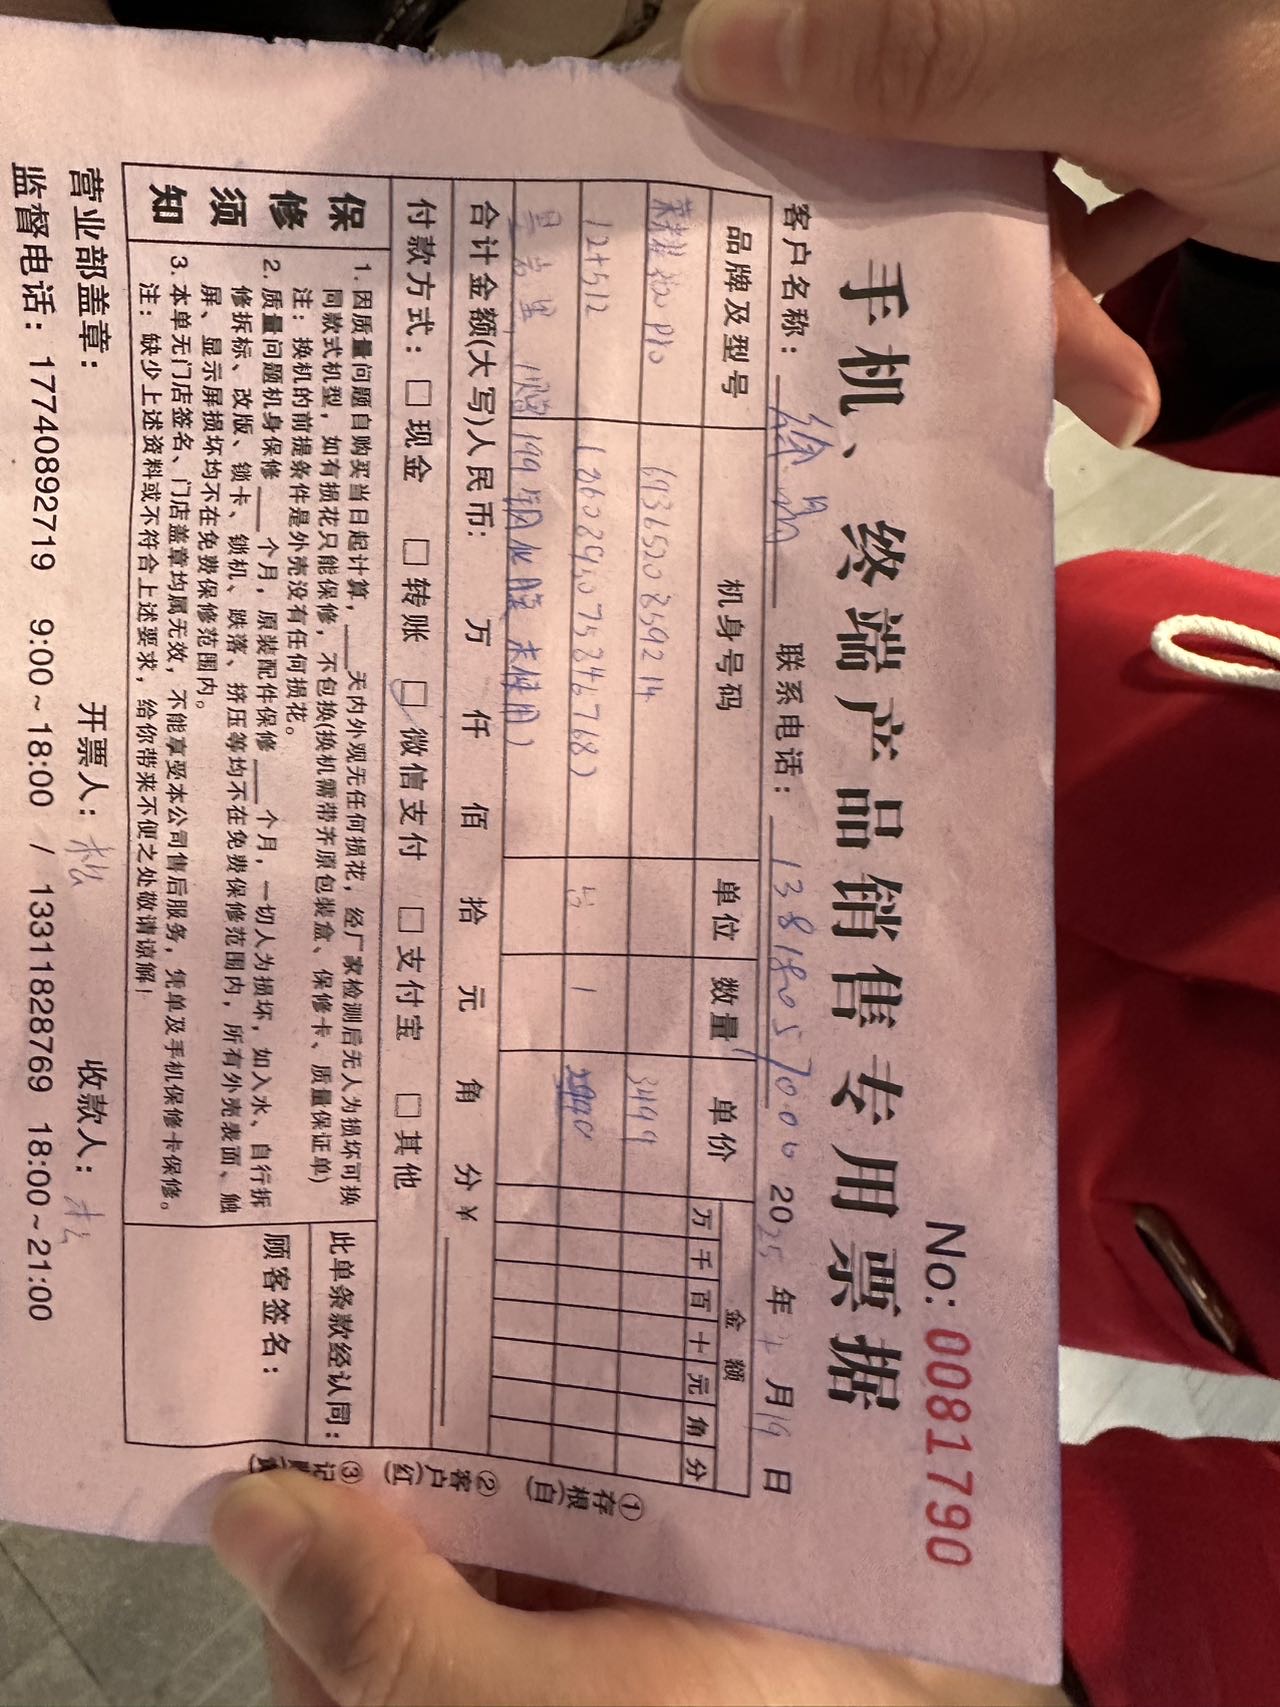 No: 0081790
手机、终端产品销售专用票据
客户名称: 徐 联系电话: 13818057006 2025年 月19日
品牌及型号 机身号码 单位 数量 单价 金额
万 千 百 十 元 角 分
荣耀 pro 6936520859214 3499
12+512 台 1
199钢化膜 未使用)
合计金额(大写)人民币: 万 仟 佰 拾 元 角 分 ¥
付款方式: □现金 □转账 □微信支付 □支付宝 □其他
保修须知
1. 因质量问题自购买当日起计算,___天内外观无任何损花, 经厂家检测后无人为损坏可换
同款式机型, 如有损花只能保修, 不包换(换机需带齐原包装盒、保修卡、质量保证单)
注: 换机的前提条件是外壳没有任何损花。
2. 质量问题机身保修___个月, 原装配件保修___个月, 一切人为损坏, 如入水、自行拆
修拆标、改版、锁卡、锁机、跌落、挤压等均不在免费保修范围内, 所有外壳表面、触
屏、显示屏损坏均不在免费保修范围内。
3. 本单无门店签名、门店盖章均属无效, 不能享受本公司售后服务, 凭单及手机保修卡保修。
注: 缺少上述资料或不符合上述要求, 给你带来不便之处敬请谅解!
此单条款经认同:
顾客签名:
①存根(白)
②客户(红)
③记
营业部盖章: 开票人: 松 收款人: 松
监督电话: 17740892719 9:00~18:00 / 13311828769 18:00~21:00